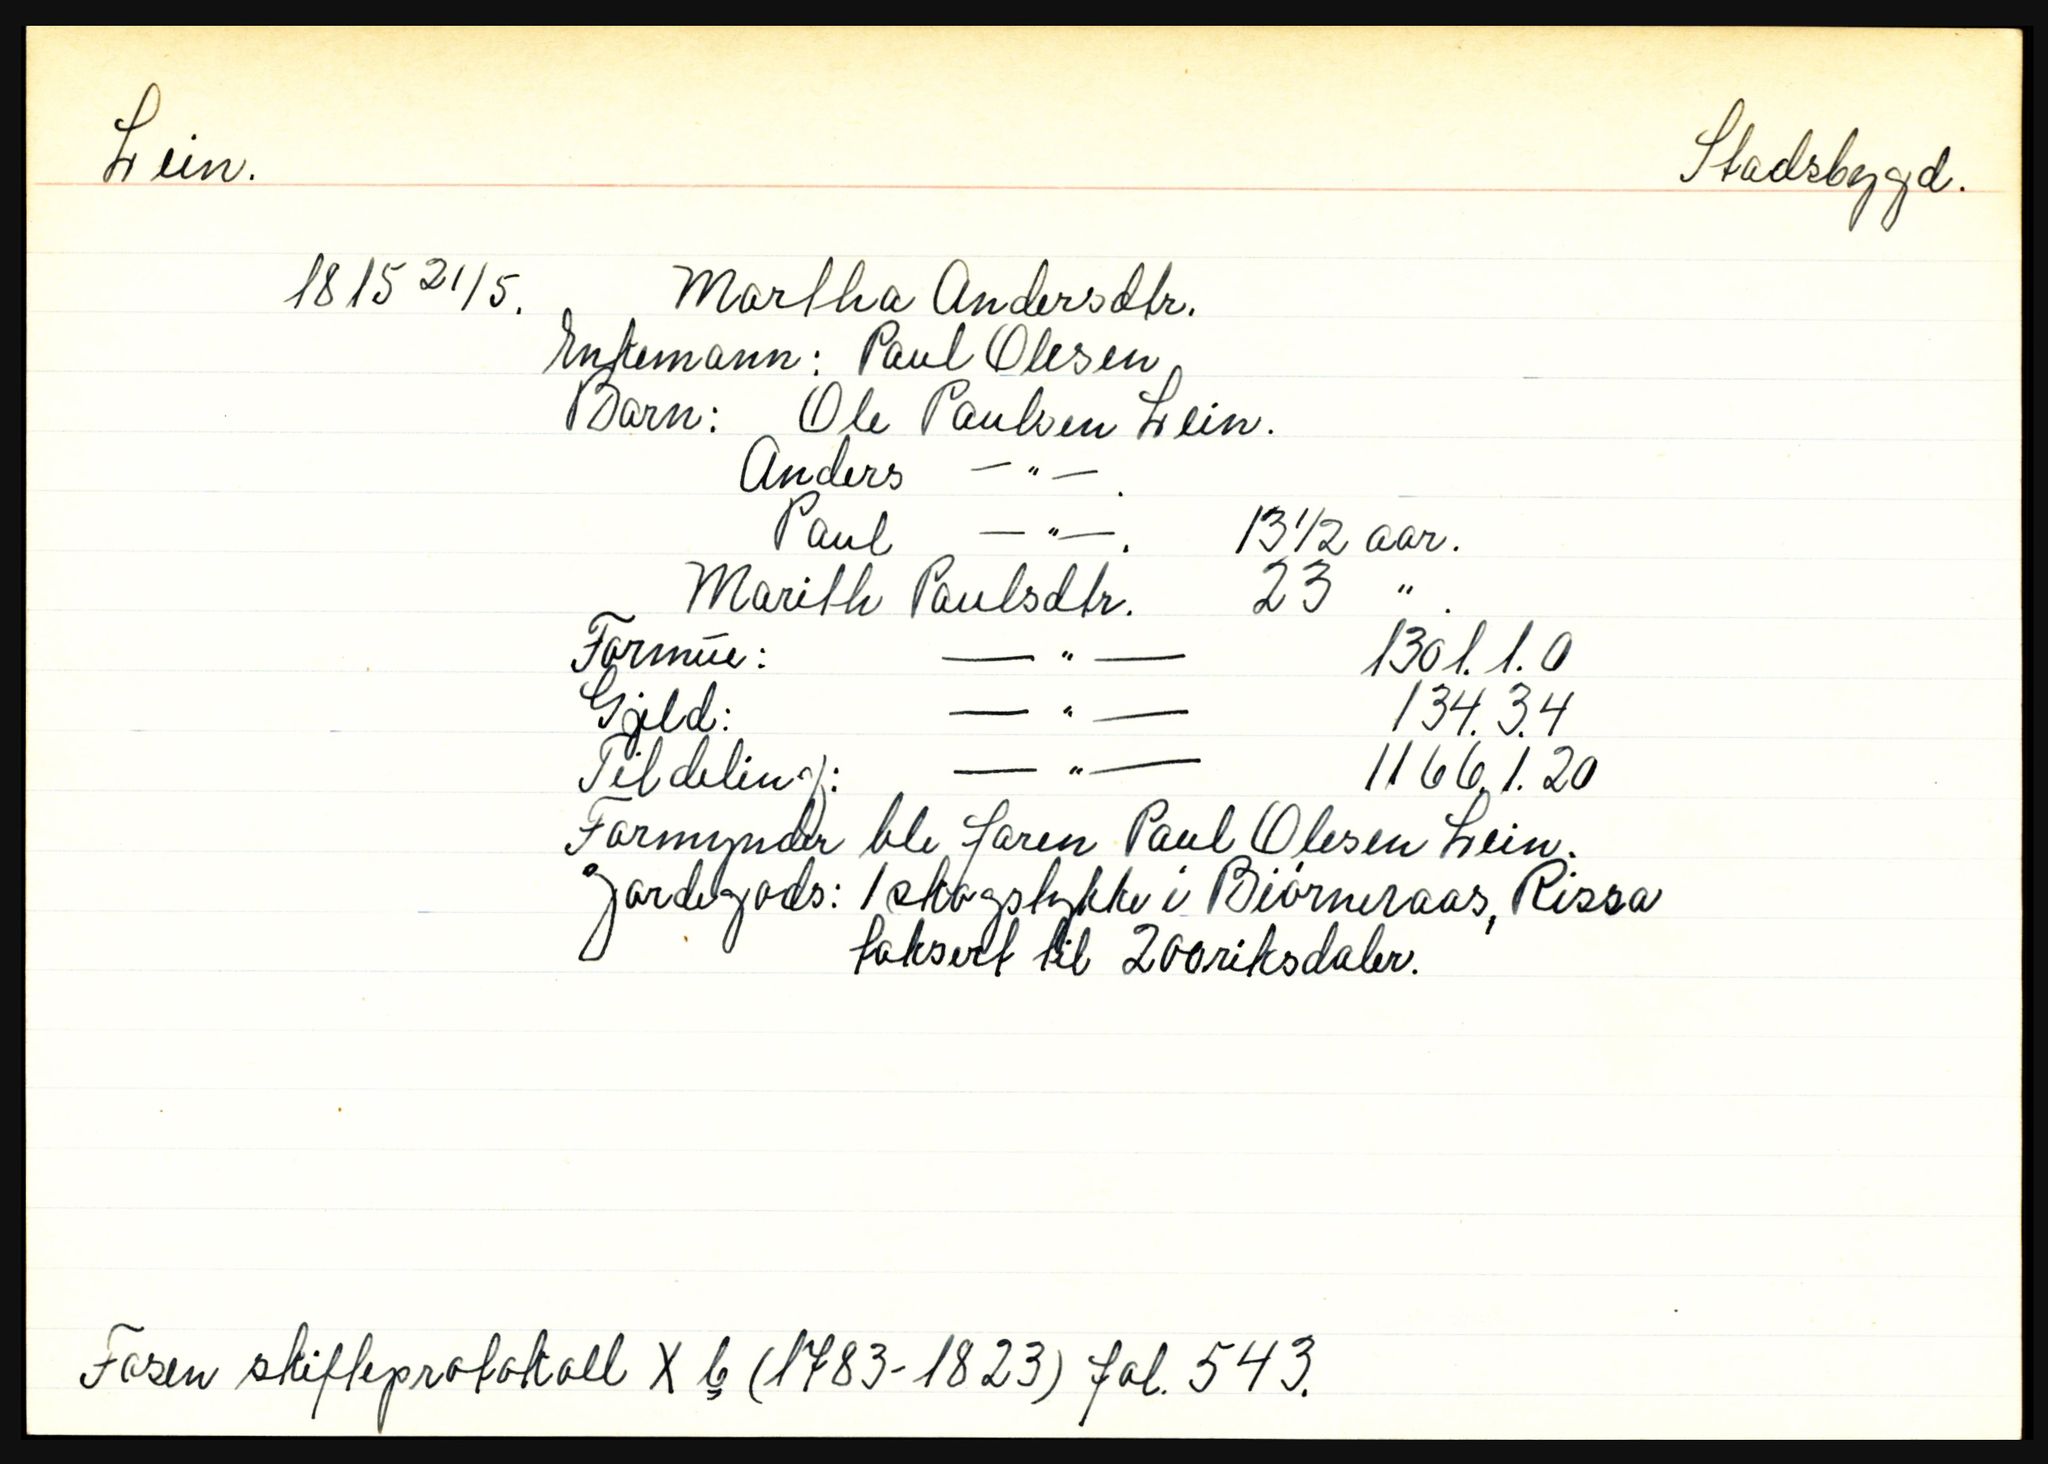 Lein. Stadsbygd.
1815 21/5. Martha Andersdtr.
Enkemann: Paul Olesen
Barn: Ole Paulsen Lein.
Anders — " — .
Paul — " — . 13 1/2 aar.
Marith Paulsdtr. 23 " .
Formúe: — " — 1301. 1. 0
Gjeld: — " — 134. 3. 4
Til deling: — " — 1166. 1. 20
Formynder ble faren Paul Olesen Lein.
Jordegods: 1 skogstykke i Biörneraas, Rissa
taksert til 200 riksdaler.
Fosen skifteprotokoll X b (1783-1823) fol. 543.